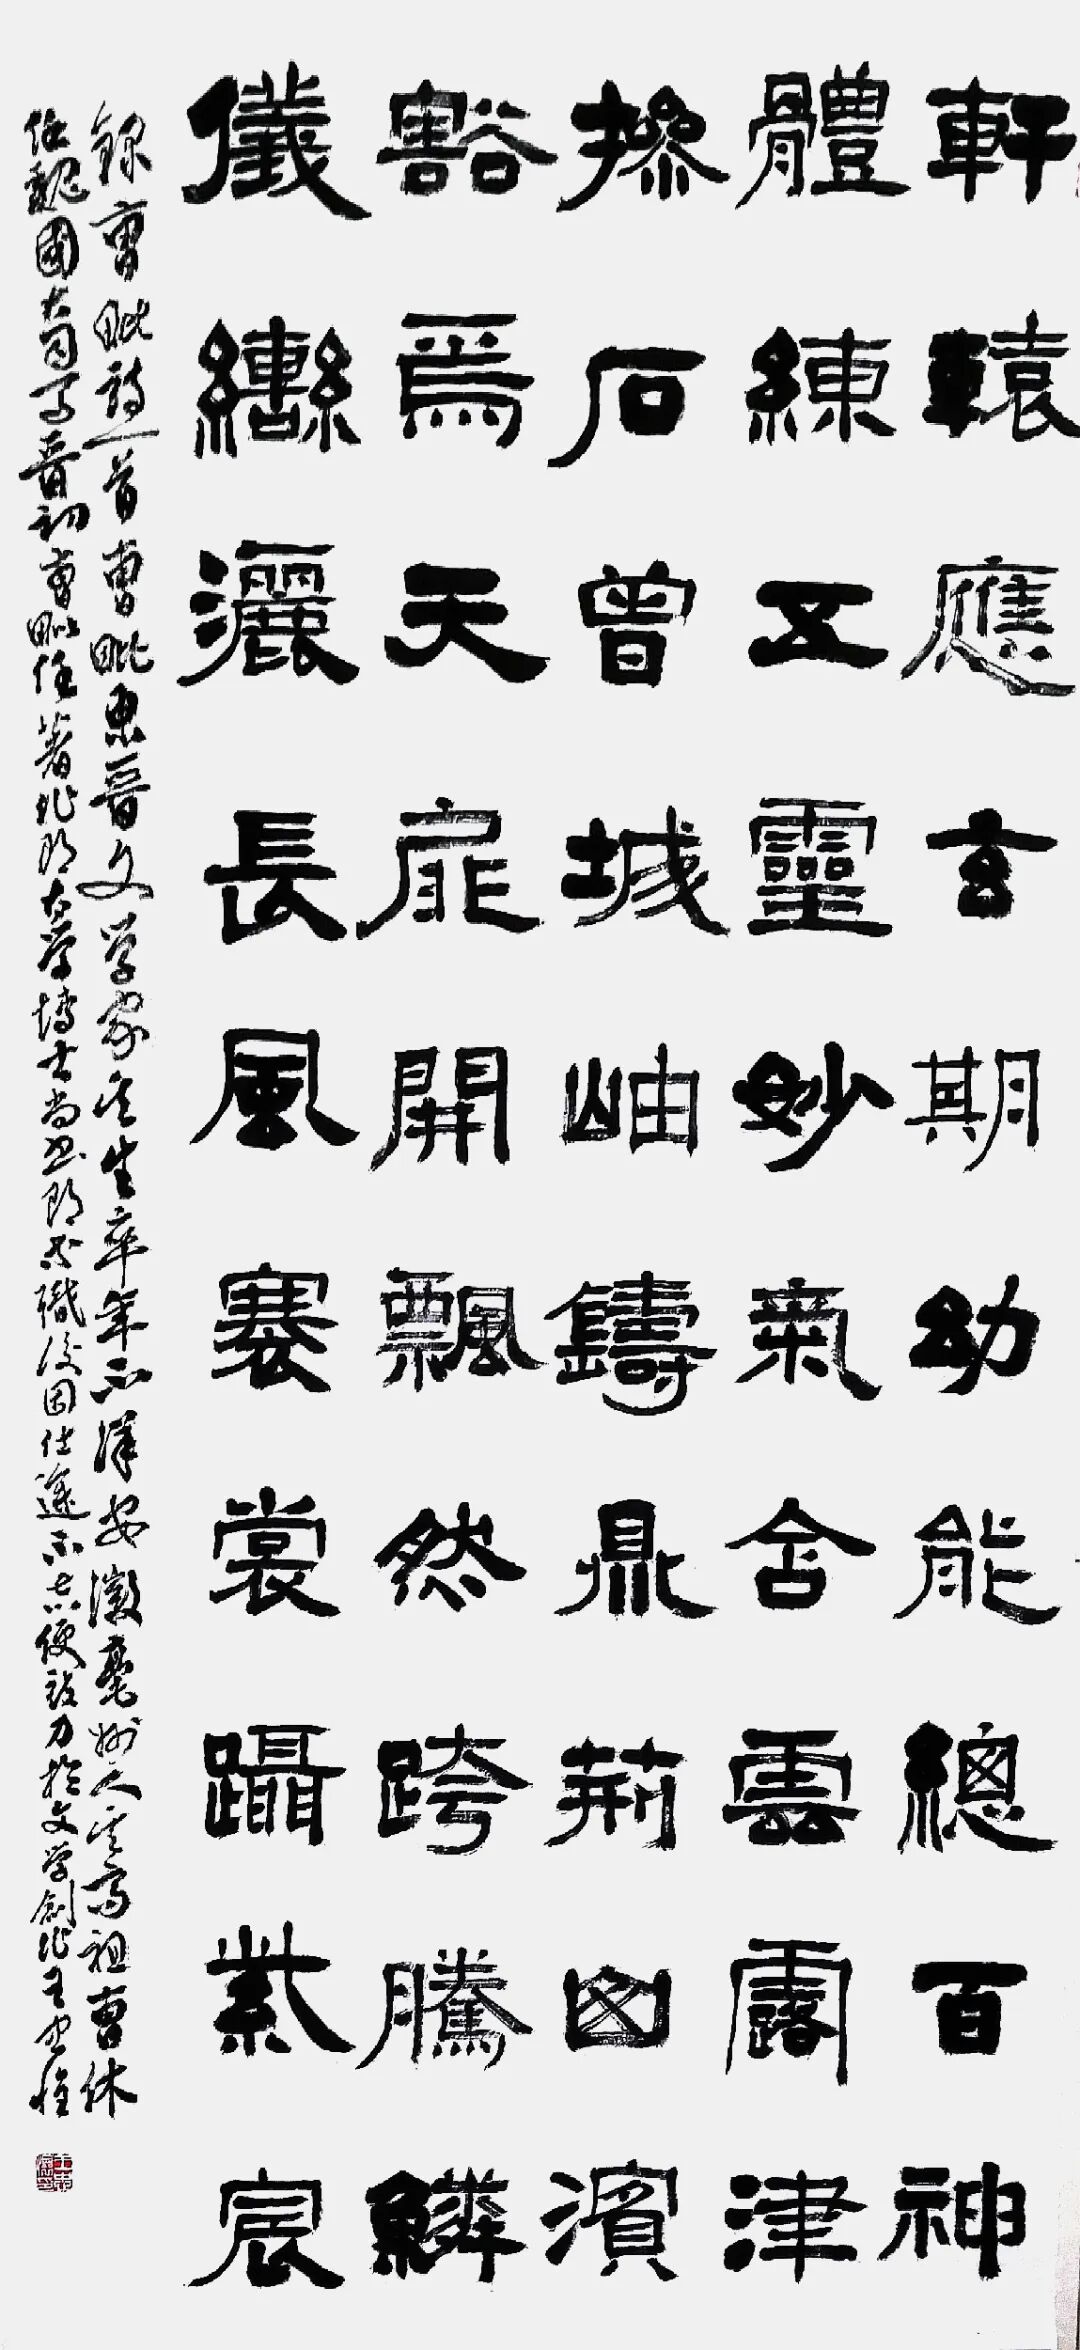 軒轅應玄期幼能總百神
體練五靈妙氣含雲露津
摻石曾城岫鑄鼎荊山濱
豁焉天扉開飄然跨騰鱗
儀轡灑長風褰裳躡紫宸
錄曹毗詩一首曹毗東晉文学家其生卒年不詳安徽亳州人其高祖曹休
任魏國大司馬晉初曹毗任著作郎太學博士尚書郎等職後因仕途不志便致力於文学創作王